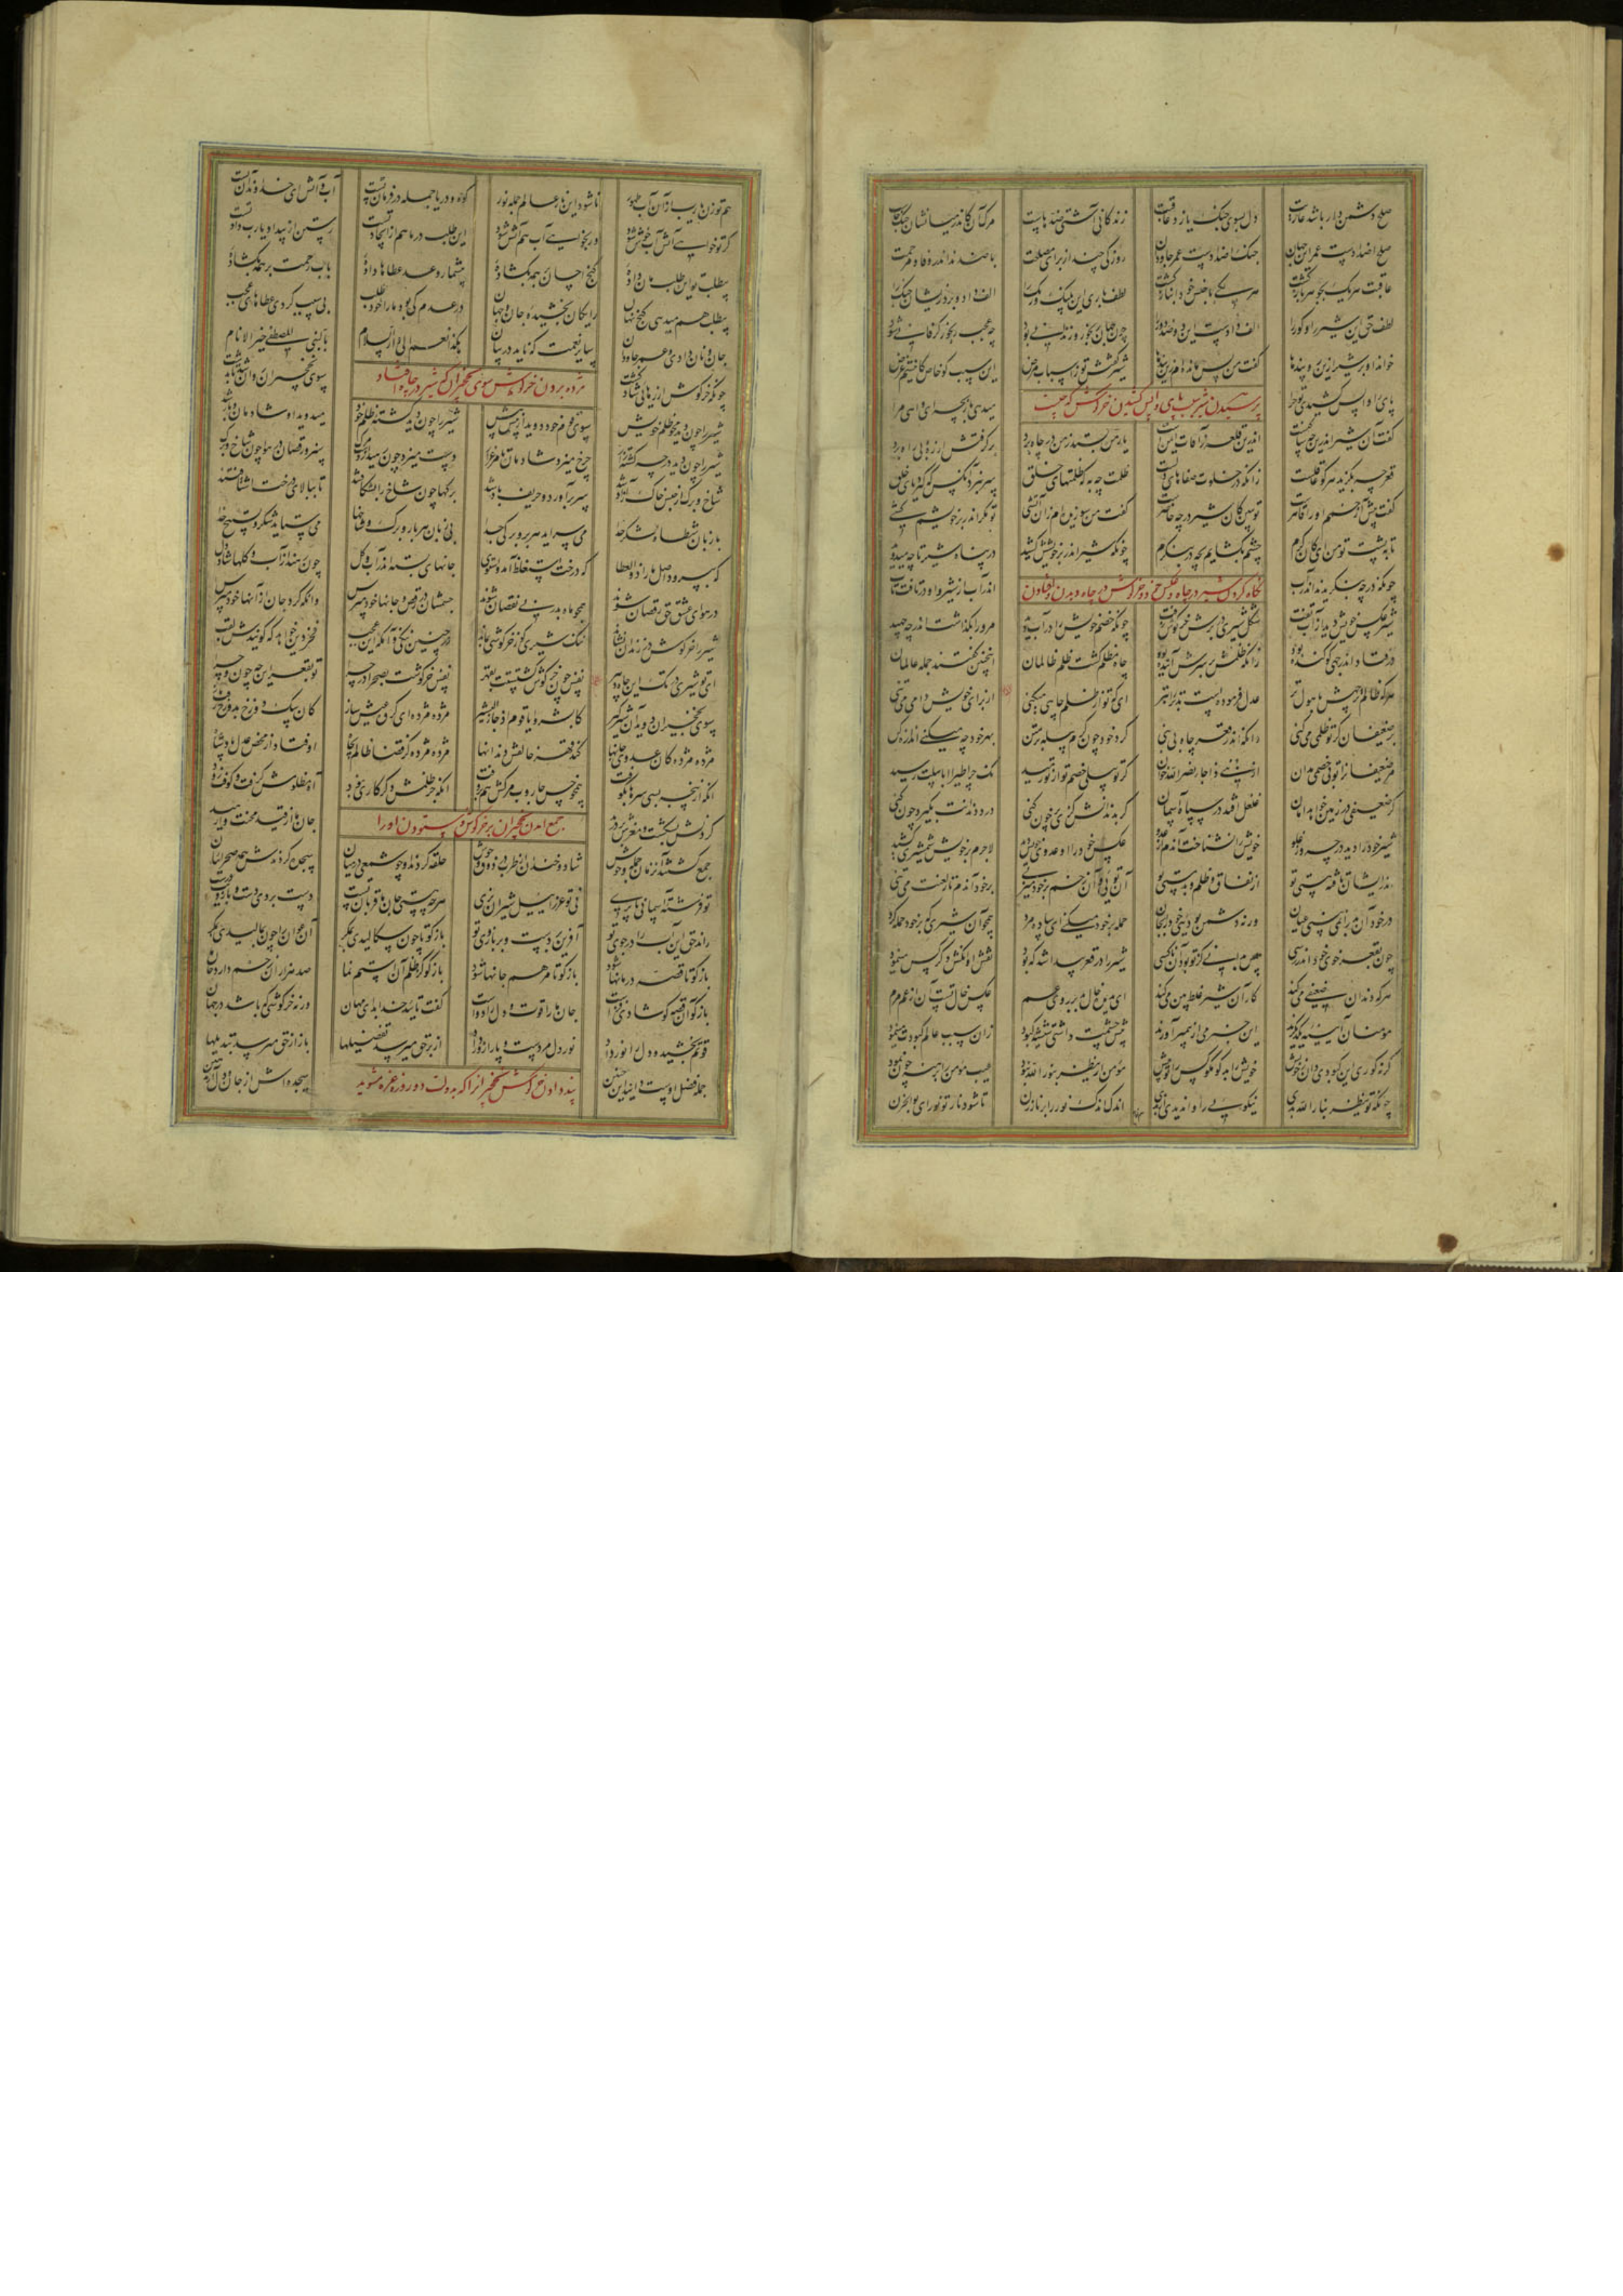 صلح دشمن دار باشد عاریت دل بسوی جنگ یازد عاقبت زندگانی آشتی ضدهاست مرگ آن کاندر میانشان جنگ خاست
صلح اضدادست عمر این جهان جنگ اضدادست عمر جاودان روزکی چند از برای مصلحت با همند اندر وفا و مرحمت
عاقبت هر یک بجوهر بازگشت هر یکی با جنس خود انباز گشت لطف باری این پلنگ و رنگ را الف داد و برد زیشان جنگ را
لطف حق این شیر را و گور را الف دادست این دو ضد دور را چون جهان رنجور و زندانی بود چه عجب رنجور اگر فانی شود
خواند او بر شیر ازین رو پندها گفت من پس مانده‌ام زین بندها شیر گفتش تو ز اسباب مرض این سبب گو خاص کانستم غرض
پرسیدن شیر سبب پای واپس کشیدن خرگوش که چیست
پای را واپس کشیدی تو چرا میدهی بازیچه ای واهی مرا
گفت آن شیر اندرین چه ساکنست اندرین قلعه ز آفات ایمنست یار من بستد ز من در چاه برد برگرفتش از ره و بی راه برد
قعر چه بگزید هر کو عاقلست زانکه در خلوت صفاهای دلست ظلمت چه به که ظلمتهای خلق سر نبرد آنکس که گیرد پای خلق
گفت پیش آ زخمم او را قاهرست تو ببین کان شیر در چه حاضرست گفت من سوزیده‌ام زان آتشی تو مگر اندر بر خویشم کشی
تا بپشت تو من ای کان کرم چشم بگشایم بچه در بنگرم چونکه شیر اندر بر خویشش کشید در پناه شیر تا چه میدوید
نگاه کردن شیر در چاه و عکس خود و خرگوش در چاه دیدن و افتادن
چونکه در چه بنگریدند اندر آب اندر آب از شیر و او در تافت تاب
شیر عکس خویش دید از آب تفت شکل شیری در برش خرگوش زفت چونکه خصم خویش را در آب دید مر ورا بگذاشت اندر چه جهید
در فتاد اندر چهی کو کنده بود زانکه ظلمش بر سرش آینده بود چاه مظلم گشت ظلم ظالمان اینچنین گفتند جمله عالمان
هر که ظالم تر چهش با هول تر عدل فرموده است بدتر را بتر ای که تو از ظلم چاهی میکنی از برای خویش دامی می تنی
بر ضعیفان گر تو ظلمی می کنی دانکه اندر قعر چاه بی بنی گرد خود چون کرم پیله بر متن بهر خود چه میکنی اندازه کن
مر ضعیفانرا تو بی خصمی مدان از نبی اذا جاء نصر الله خوان گر تو پیلی خصم تو از تو رمید نک جزا طیرا ابابیلت رسید
گر ضعیفی در زمین خواهد امان غلغل افتد در سپاه آسمان گر بدندانش گزی پر خون کنی درد دندانت بگیرد چون کنی
شیر خود را دید در چه وز غلو خویش را نشناخت آندم از عدو عکس خود را او عدوی خویش دید لاجرم بر خویش شمشیری کشید
اندر ایشان تافته هستی تو از نفاق و ظلم و بدمستی تو آن توئی و آن زخم بر خود میزنی بر خود آندم تار لعنت می تنی
در خود آن بد را نمی بینی عیان ورنه دشمن بودئی خود را بجان حمله بر خود میکنی ای ساده مرد همچو آن شیری که بر خود حمله کرد
چون بقعر خوی خود اندر رسی پس بدانی کز تو بود آن ناکسی شیر را در قعر پیدا شد که بود نقش او آنکش دگر کس مینمود
هر که دندان ضعیفی میکند کار آن شیر غلط بین میکند ای بدیده خال بد بر روی عم عکس خال تست آن از عم مرم
مومنان آیینه یکدیگرند این خبر می از پیمبر آورند پیش چشمت داشتی شیشه کبود زان سبب عالم کبودت مینمود
گر نه کوری این کبودی دان ز خویش خویش را بد گو مگو کس را تو بیش مؤمن ار ینظر بنور الله نبود عیب مؤمن را برهنه چون نمود
چونکه تو ینظر بنار الله بدی نیکوئی را وا ندیدی از بدی اندک اندک نور را بر نار زن تا شود نار تو نور ای بوالحزن
هم تو زن یا رب از آن آب طهور تا شود این نار عالم جمله نور کوه و دریا جمله در فرمان تست آب و آتش ای خداوند آن تست
گر تو خواهی آتش آب خوش شود ور نخواهی آب هم آتش شود این طلب در ما هم از ایجاد تست رستن از بیداد یا رب داد تست
بیطلب تو این طلب مان داده گنج احسان بر همه بگشاده بیشمار و عد عطاها داده باب رحمت بر همه بگشاده
بیطلب هم میدهی گنج نهان رایگان بخشیده جان و جهان در عدم کی بود ما را خود طلب بی سبب کردی عطاهای عجب
جان و نان دادی و عمر جاودان سایر نعمت که ناید در بیان هکذا انعم الی دار السلام بالنبی المصطفی خیر الانام
مژده بردن خرگوش سوی نخجیران که شیر در چاه افتاد
چونکه خرگوش از رهایی شاد گشت سوی نخجیران دوان شد تا بدشت
شیر را چون دید محو ظلم خویش سوی قوم خود دوید او پیش پیش شیر را چون دید کشته ظلم خود میدوید او شادمان و با رشد
شیر را چون دید در چه کشته زار چرخ میزد شادمان تا مرغزار دست میزد چون رهید از دست مرگ سبز و رقصان در هوا چون شاخ و برگ
شاخ و برگ از حبس خاک آزاد شد سر برآورد و حریف باد شد برگها چون شاخ را بشکافتند تا ببالای درخت اشتافتند
با زبان شطأه شکر خدا می سراید هر بر و برگی جدا بی زبان هر بار و برگ و شاخها می ستاید شکر و تسبیح خدا
که بپرورد اصل ما را ذو العطا تا درخت استغلظ آمد و استوی جانهای بسته اندر آب و گل چون رهند از آب و گلها شاددل
در هوای عشق حق رقصان شوند همچو ماه بدر بی نقصان شوند جسمشان در رقص و جانها خود مپرس وانکه گردد جان از آنها خود مپرس
شیر را خرگوش در زندان نشاند ننگ شیری کو ز خرگوشی بماند در چنین ننگی و آنگه این عجب فخر دین خواهد که گویندش لقب
ای تو شیری در تک این چاه دهر نفس چون خرگوش کشتت بقهر نفس خرگوشت بصحرا در چرا تو بقعر این چه چون و چرا
سوی نخجیران دوید آن شیرگیر کابشروا یا قوم اذ جاء البشیر مژده مژده ای گروه عیش ساز کان سگ دوزخ بدوزخ رفت باز
مژده مژده کان عدو جانها کند قهر خالقش دندانها مژده مژده کز قضا ظالم بچاه اوفتاد از محض عدل پادشاه
آنکه از پنجه بسی سرها بکوفت همچو خس جاروب مرگش هم بروفت آنکه جز ظلمش دگر کاری نبود آه مظلومش گرفت و کوفت زود
جمع آمدن نخجیران بر خرگوش و ستودن او را
گردنش بشکست و مغزش بردرید جان ما از قید محنت وارهید
جمع گشتند آنزمان جمله وحوش شاد و خندان از طرب در ذوق و جوش حلقه کردند او چو شمعی در میان سجده کردندش همه صحراییان
تو فرشته آسمانی یا پری نی تو عزراییل شیران نری هر چه هستی جان ما قربان تست دست بردی دست و بازویت درست
راند حق این آب را در جوی تو آفرین بر دست و بر بازوی تو بازگو تا چون سگالیدی بمکر آن عوان را چون بمالیدی بمکر
بازگو تا قصه درمانها شود بازگو تا مرهم جانها شود بازگو کز ظلم آن استم نما صد هزاران زخم دارد جان ما
بازگو آن قصه کو شادی فزاست جان ما را قوت و دل را دواست گفت تایید خدا بد ای مهان ورنه خرگوشی که باشد در جهان
قوتم بخشید و دل را نور داد نور دل مر دست و پا را زور داد از بر حق میرسد تفضیلها باز از حق میرسد تبدیلها
پند دادن خرگوش نخجیرانرا که بدولت دو روزه غره مشوید